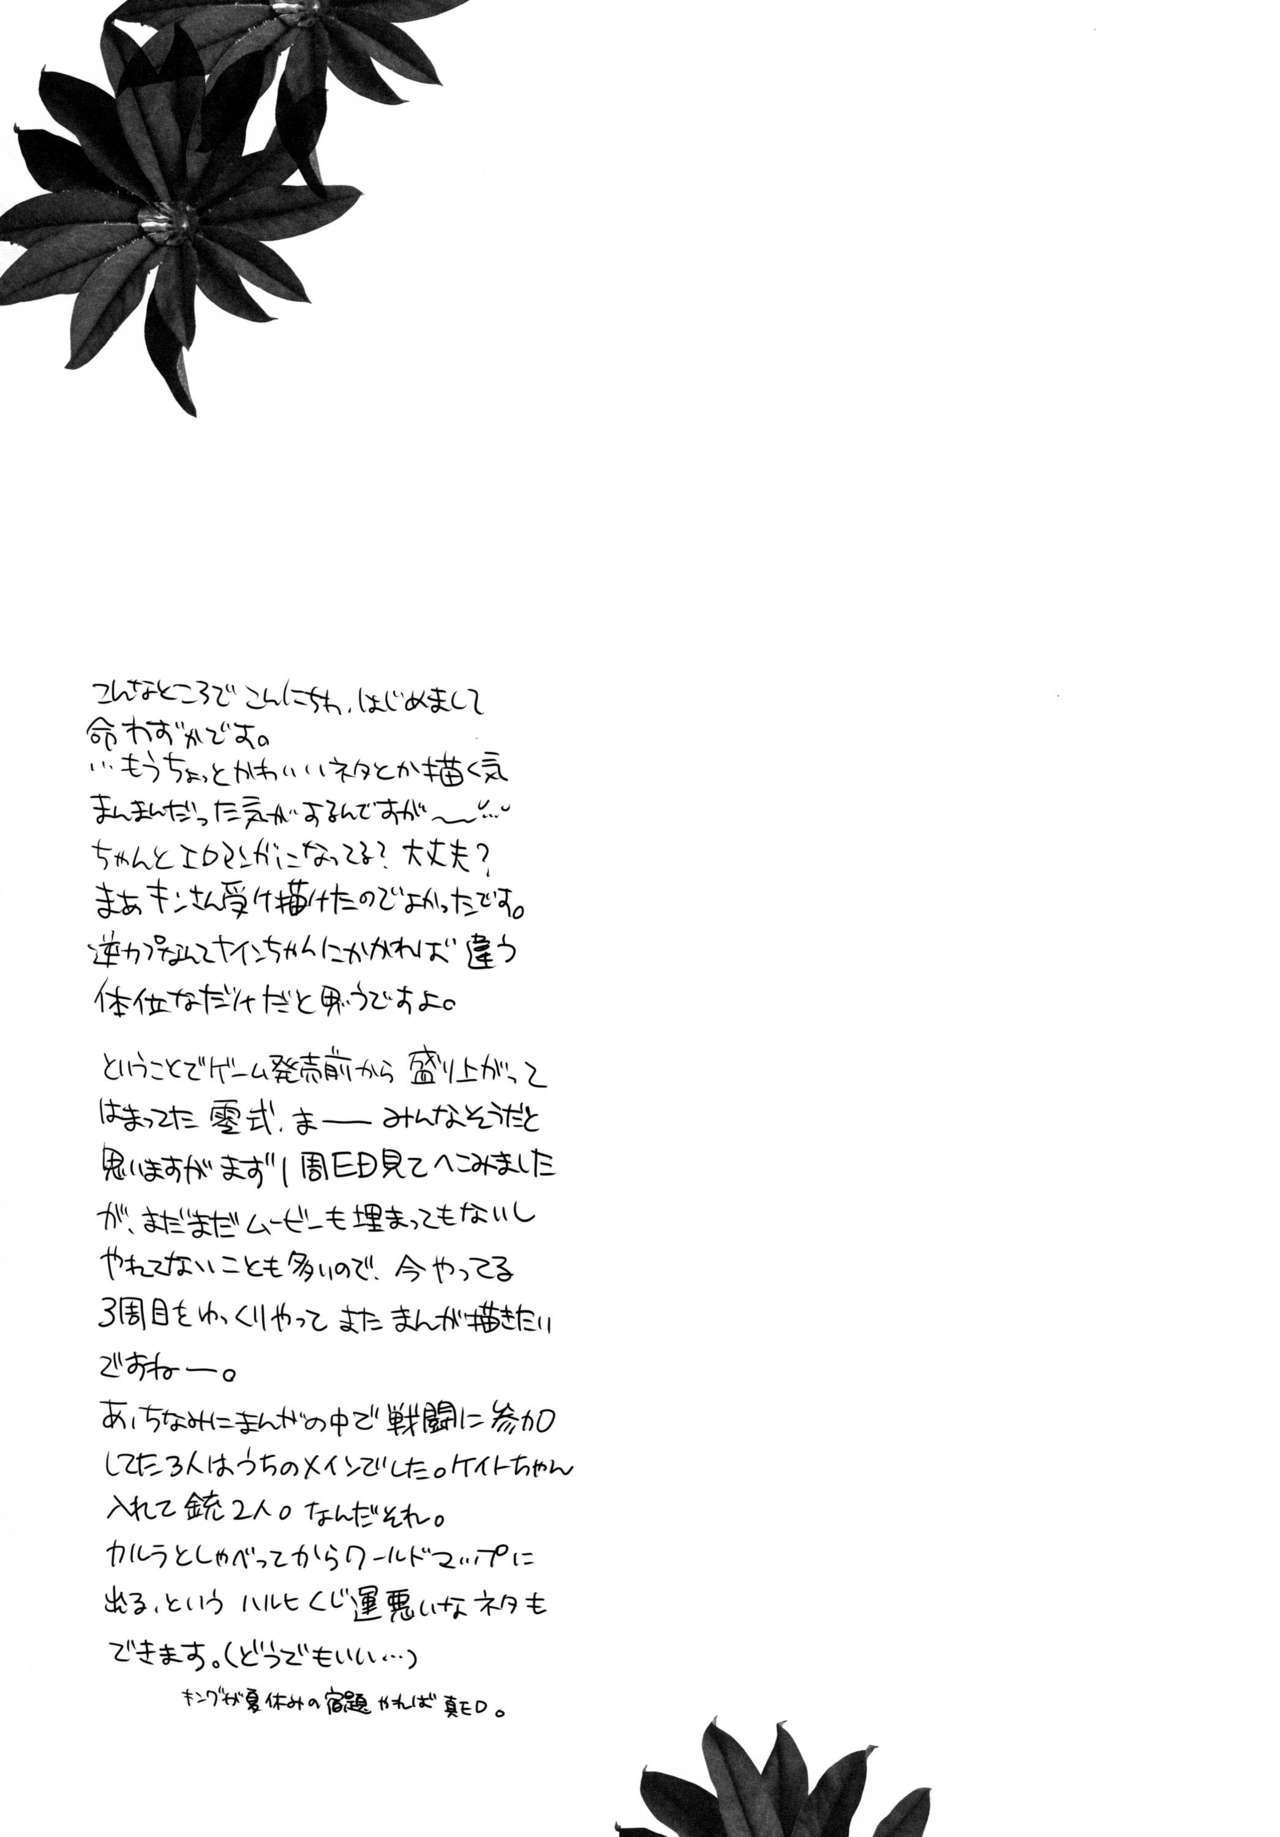 こんなところで こんにちわ、はじめまして
命わずかです。
…もうちょっとかわいいネタとか描く気
まんまんだった気がするんですが〜〜…
ちゃんとエロマンガになってる？大丈夫？
まあキンさん受け描けたのでよかったです。
逆カプなんてナインちゃんにかかれば 違う
体位なだけだと思うですよ。
ということでゲーム発売前から 盛り上がって
はまってた 零式、ま―― みんなそうだと
思いますが まず1周ED見て へこみました
が、まだまだムービーも埋まってもないし
やれてないことも多いので、今やってる
3周目を ゆっくりやって また まんが描きたい
ですねー。
あ、ちなみにまんがの中で 戦闘に 参加
してた3人はうちのメインでした。ケイトちゃん
入れて 銃2人。なんだそれ。
カルラとしゃべってから ワールドマップに
出る、という ハルヒくじ運悪いな ネタも
できます。(どうでもいい…)
キングが夏休みの宿題 やれば 真ED。